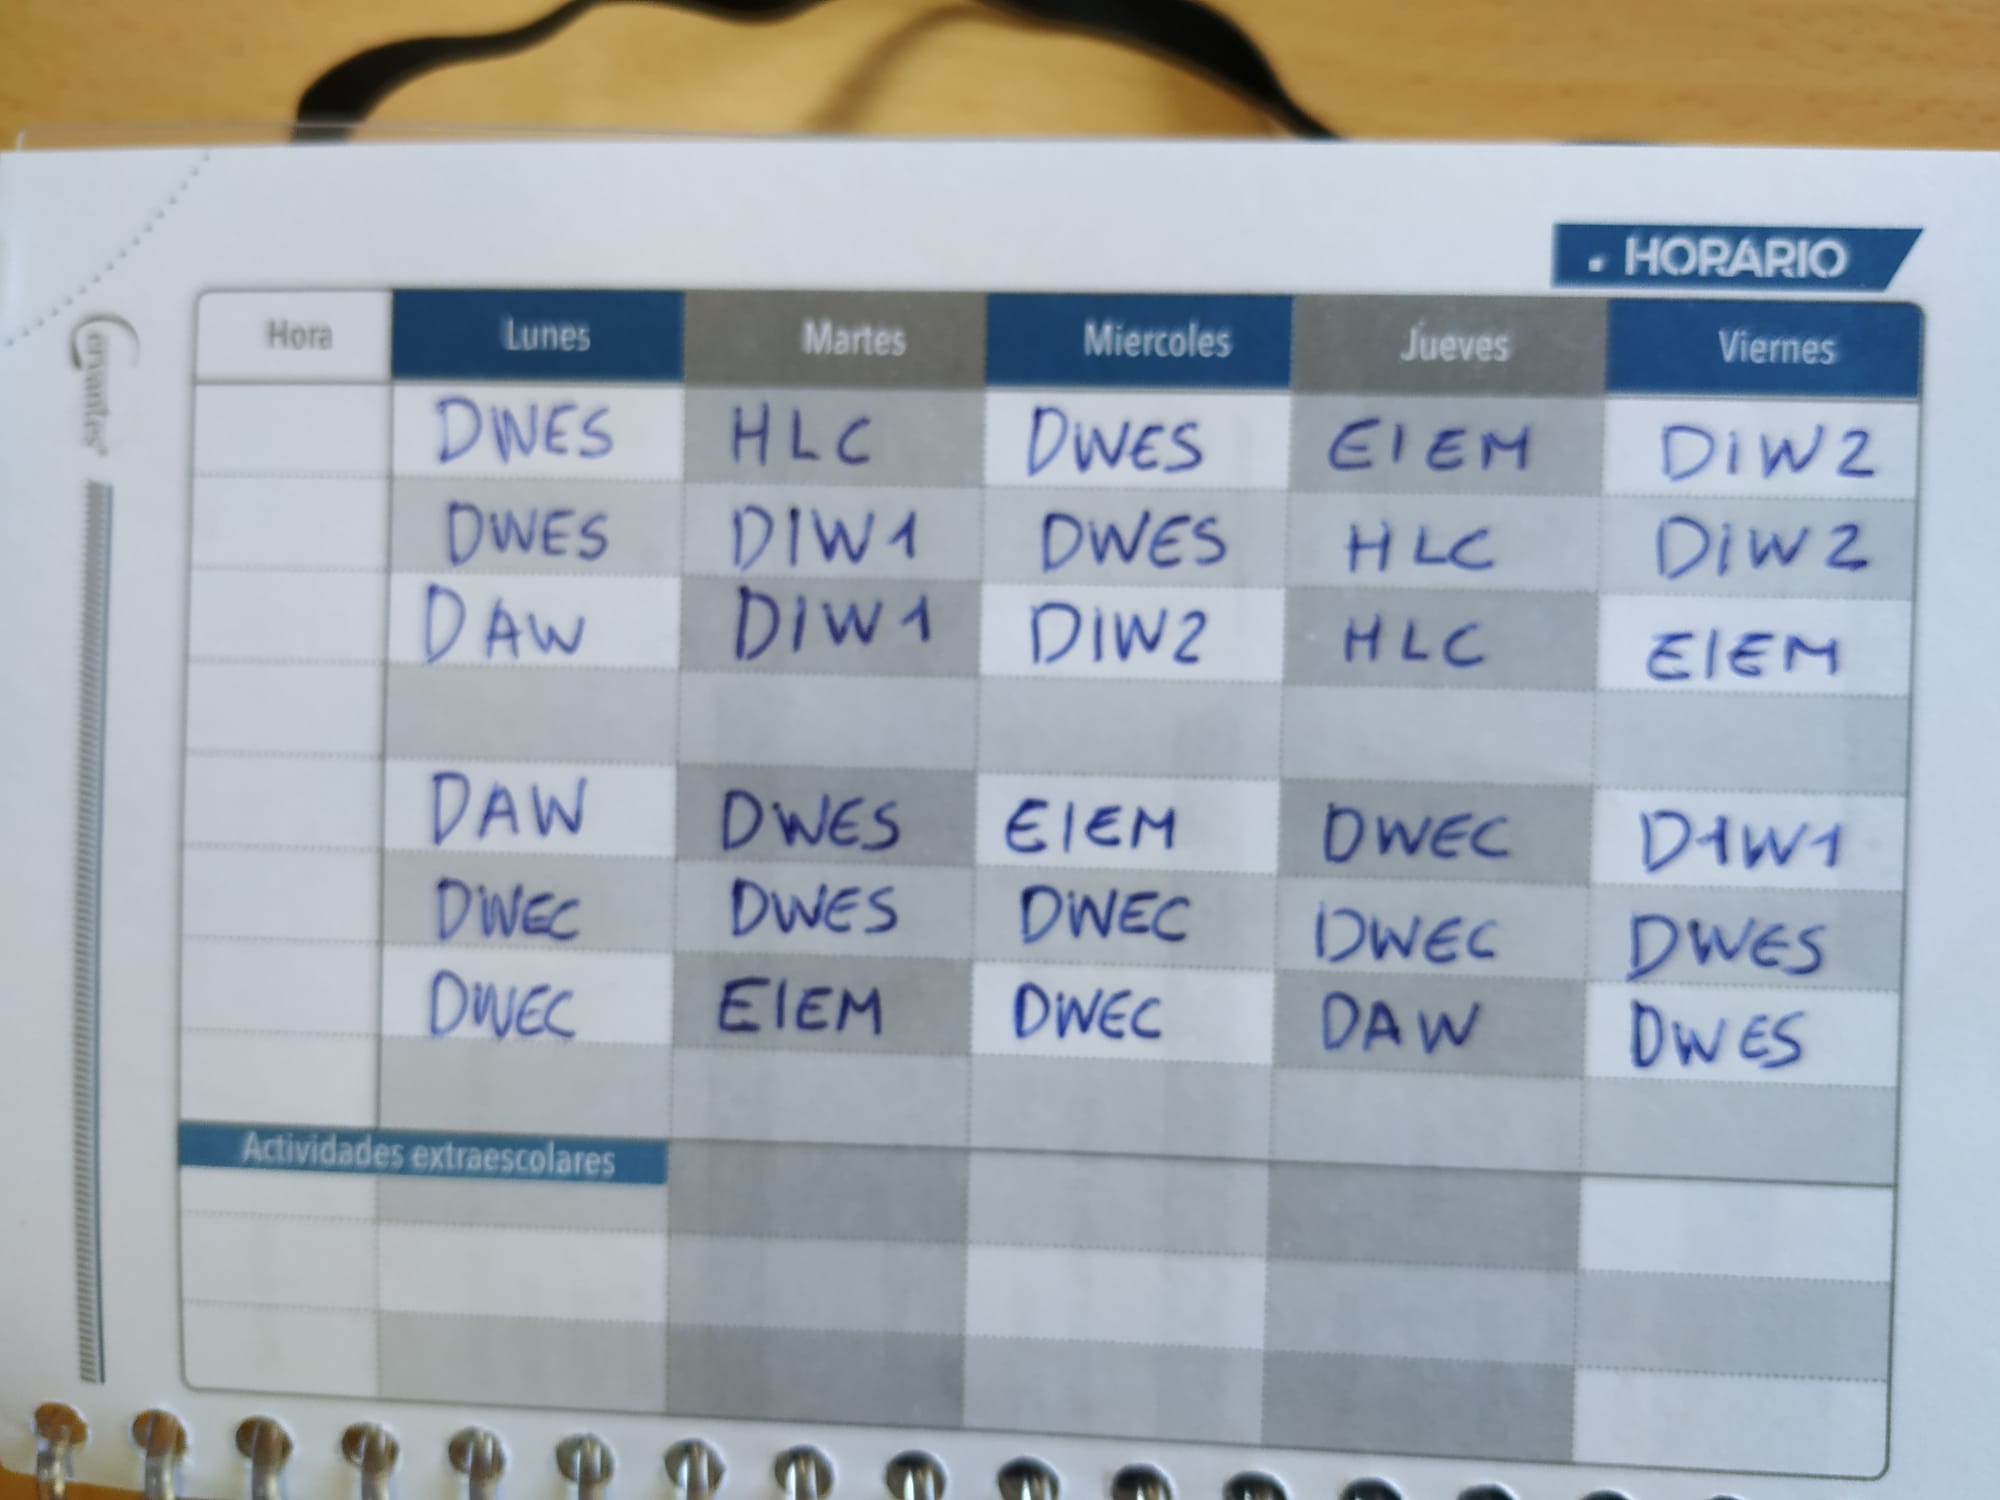 HORARIO
Cervantes
Hora Lunes Martes Miercoles Jueves Viernes
DWES HLC DWES EIEM DIW2
DWES DIW1 DWES HLC DIW2
DAW DIW1 DIW2 HLC EIEM
DAW DWES EIEM DWEC D1W1
DWEC DWES DWEC DWEC DWES
DWEC EIEM DWEC DAW DWES
Actividades extraescolares